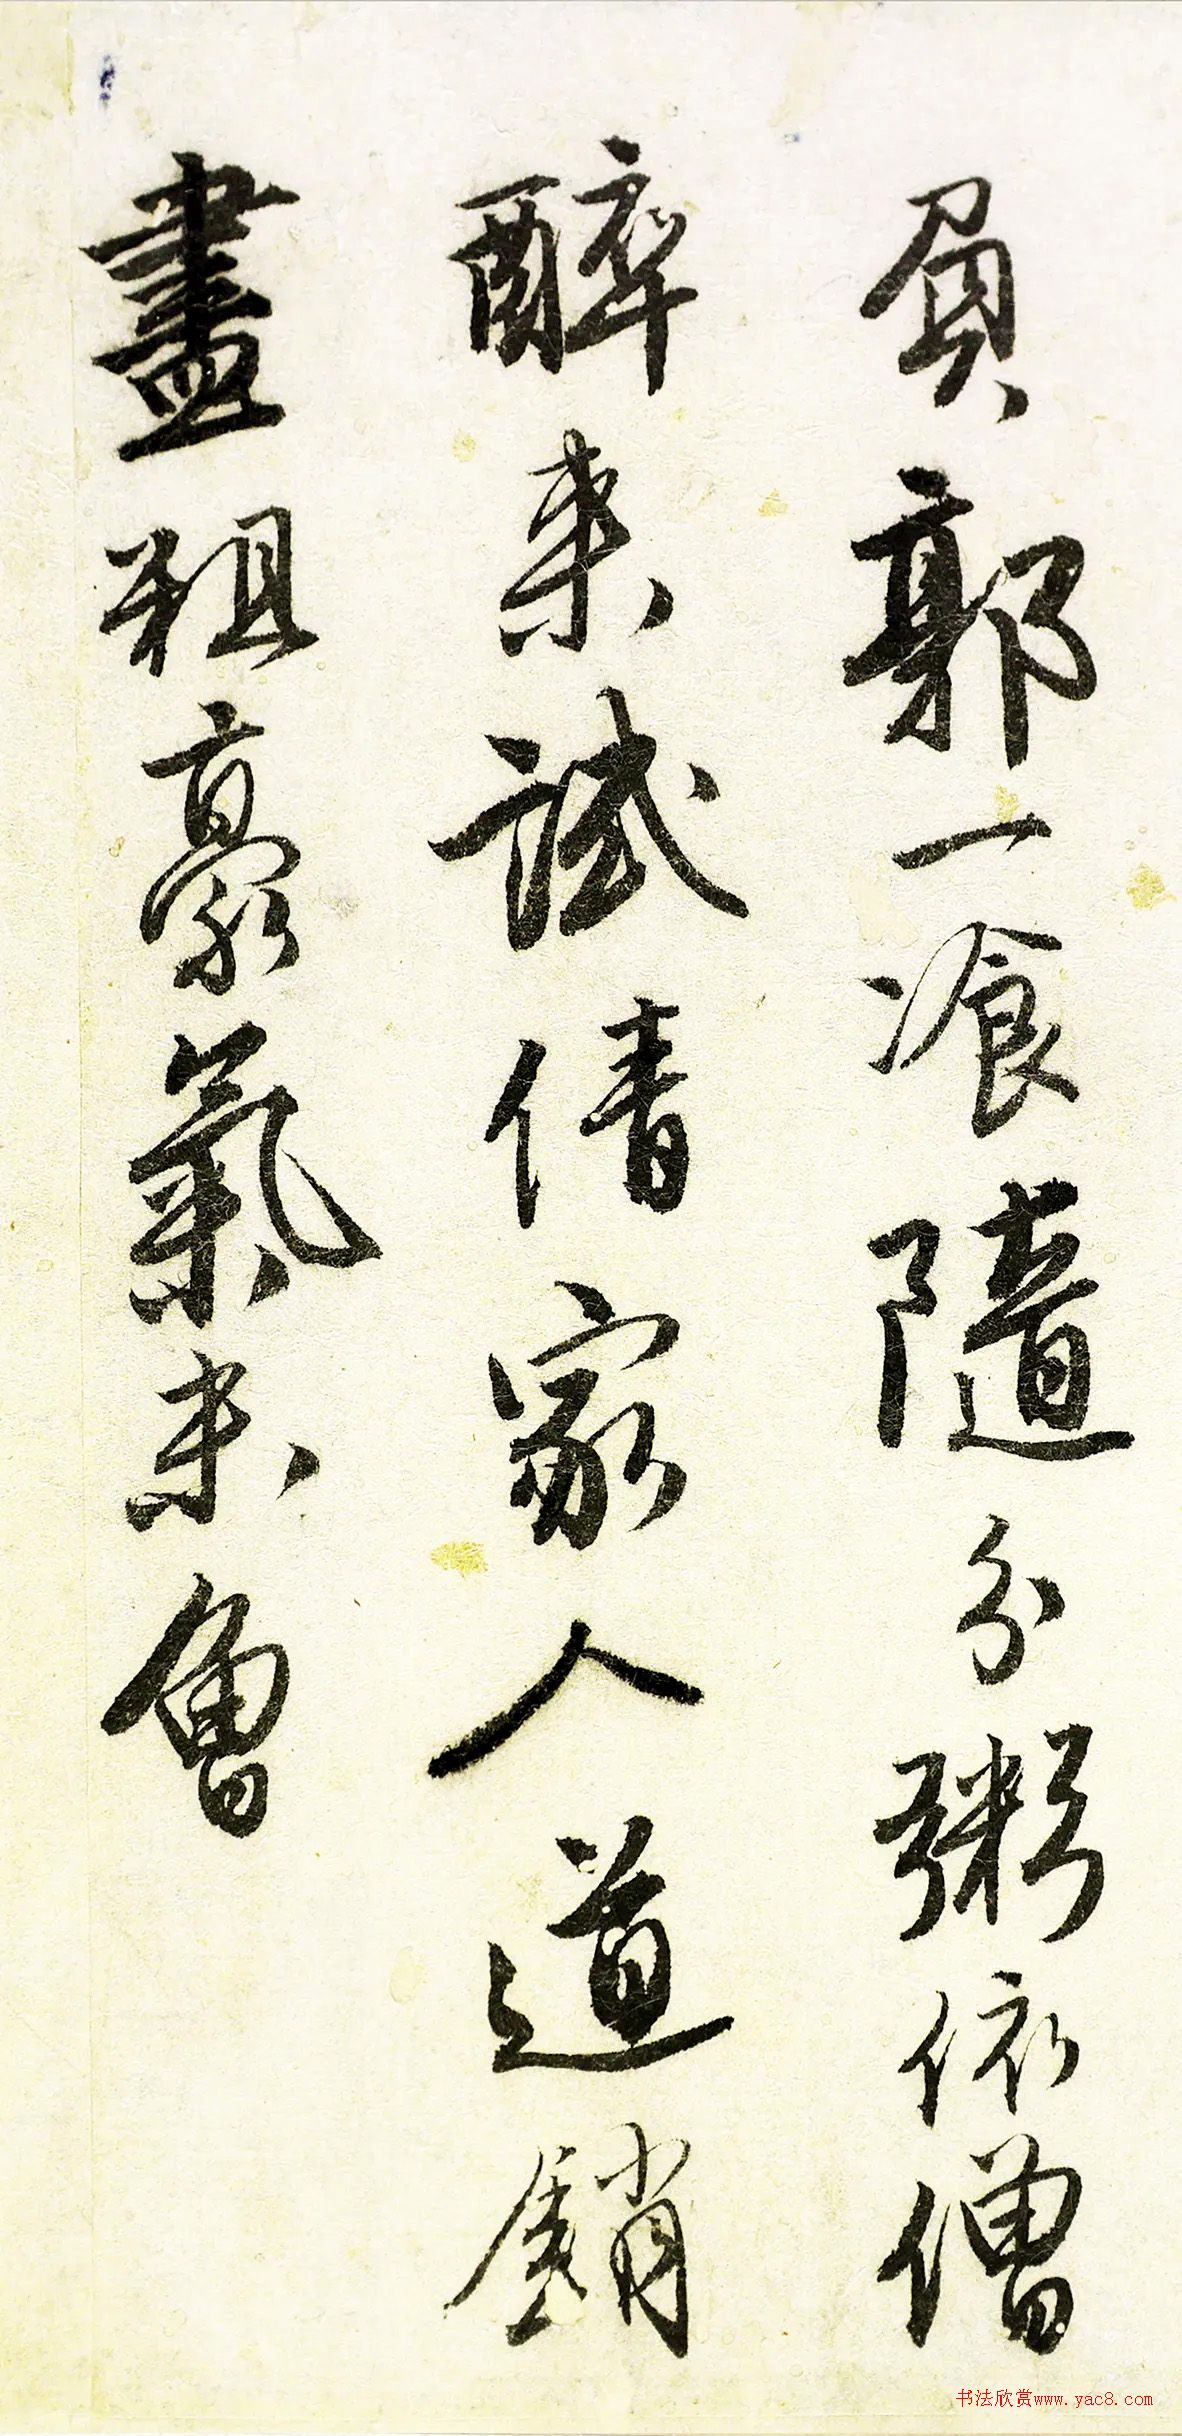 負郭一飡隨分粥依僧
醉来試倩家人道銷
盡粗豪氣未曾
书法欣赏www.yac8.com